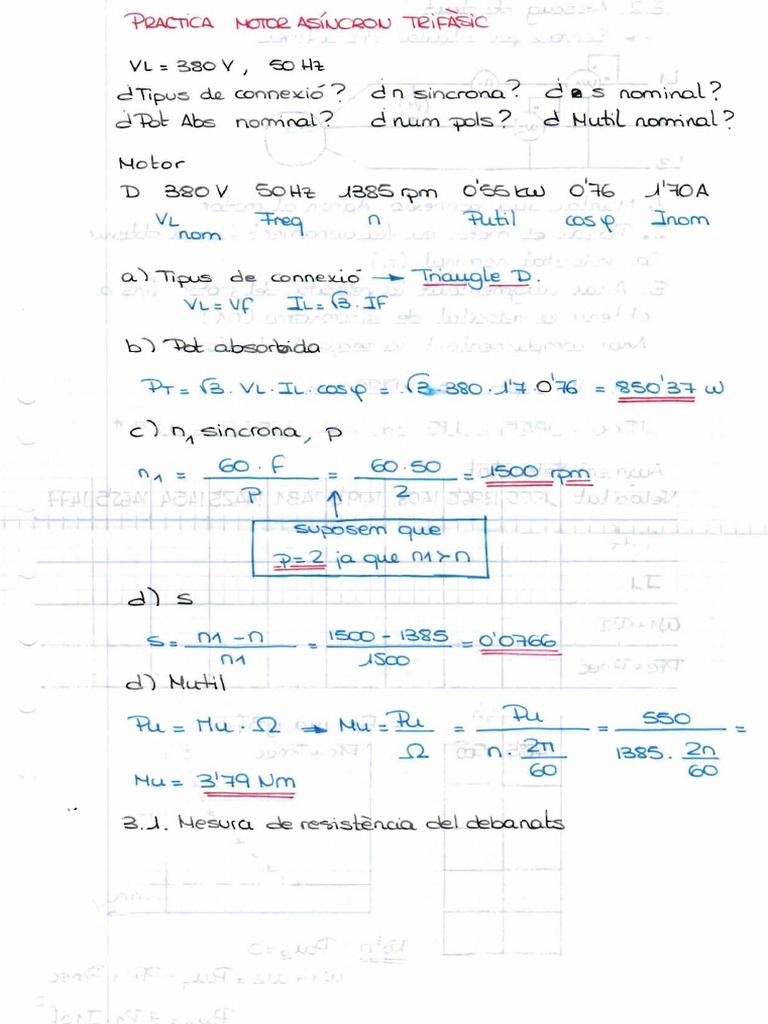 PRACTICA MOTOR ASÍNCRON TRIFÀSIC
VL = 380 V, 50 Hz
¿Tipus de connexió? ¿n sincrona? ¿s nominal?
¿Pot Abs nominal? ¿num pols? ¿Mutil nominal?
Motor
D 380 V 50 Hz 1385 rpm 0'55 kw 0'76 1'70 A
VL nom Freq n Putil cos φ Inom
a) Tipus de connexió → Triangle D.
VL = Vf IL = √3 · IF
b) Pot absorbida
PT = √3 · VL · IL · cos φ = √3 · 380 · 1'7 · 0'76 = 850'37 w
c) n1 sincrona, p
n1 = 60 · f / P = 60 · 50 / 2 = 1500 rpm
suposem que
p = 2 ja que n1 > n
d) s
s = n1 - n / n1 = 1500 - 1385 / 1500 = 0'0766
d) Mutil
Pu = Mu · Ω → Mu = Pu / Ω = Pu / n · 2π / 60 = 550 / 1385 · 2π / 60 =
Mu = 3'79 Nm
3.1. Mesura de resistència del debanats